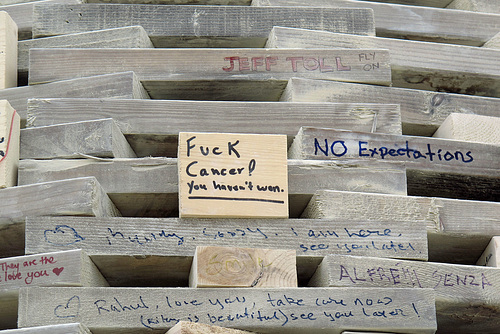 JEFF TOLL FLY
ON
Fuck
Cancer!
You haven't won.
NO Expectations
I am here.
see you later
They are the
love you
ALFREDI SENZA
Rahul, love you, take care now
is beautiful) see you later!